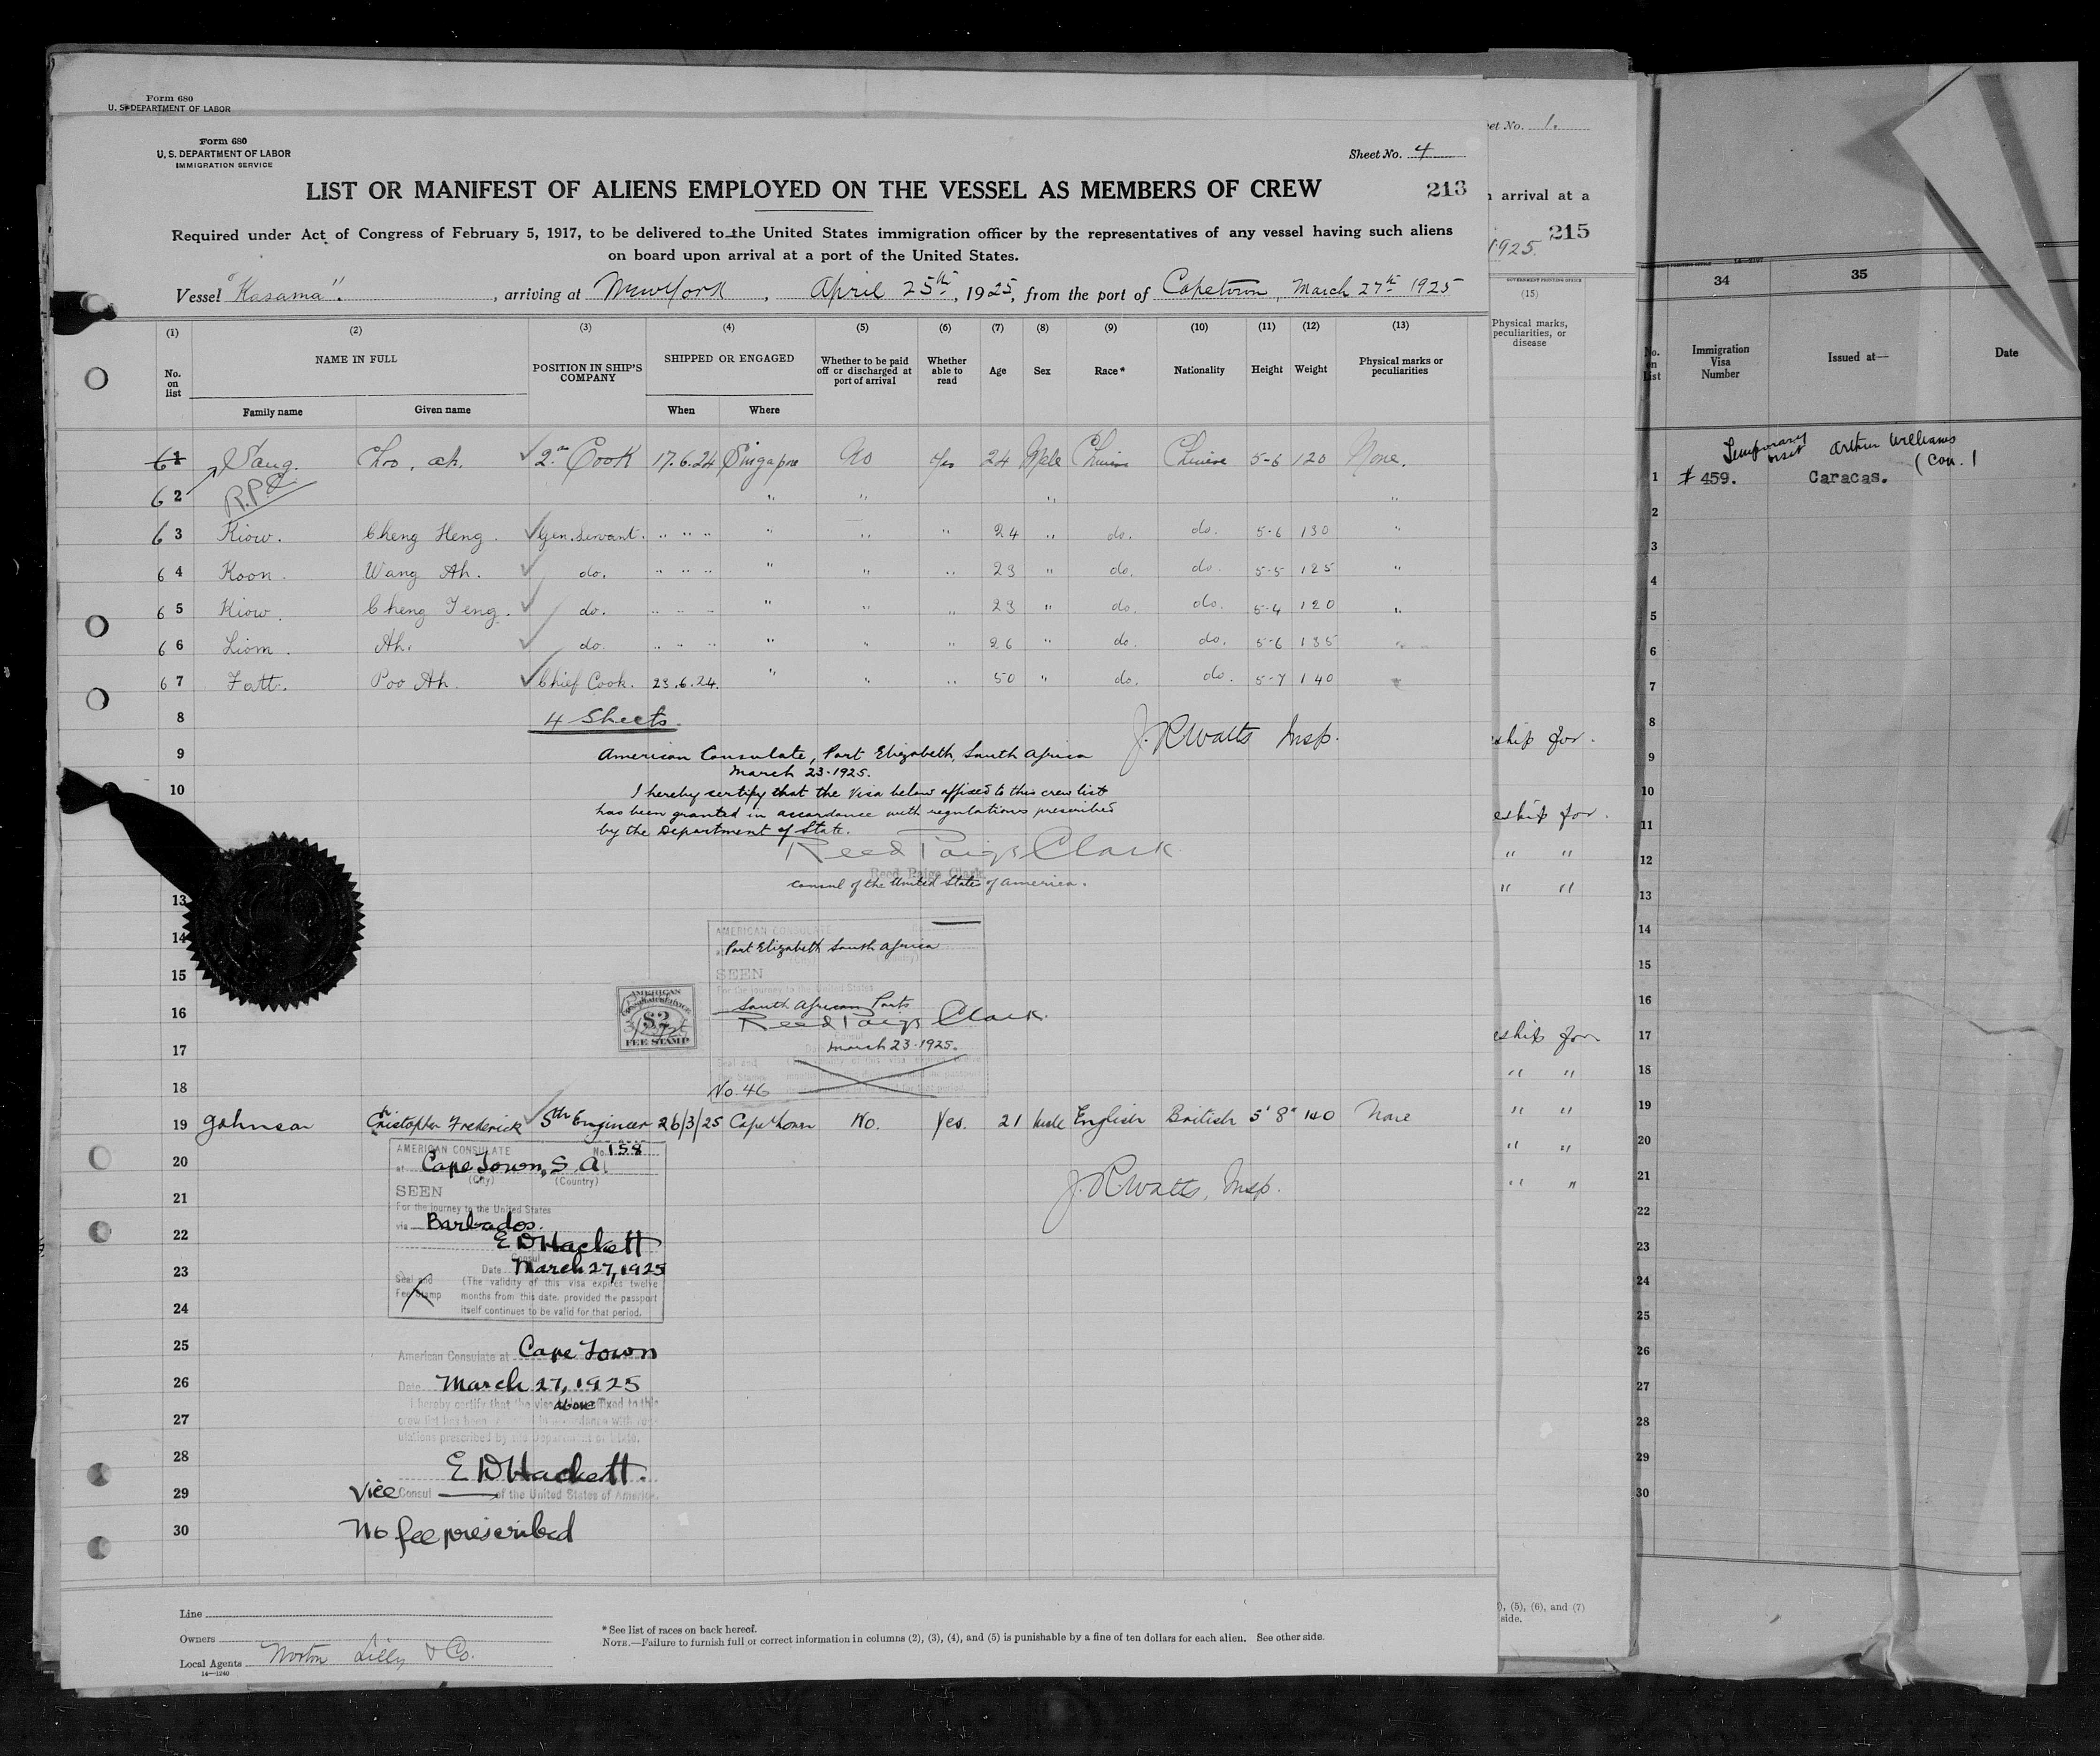 Form 680
U. S. DEPARTMENT OF LABOR
Form 680
U. S. DEPARTMENT OF LABOR
IMMIGRATION SERVICE
Sheet No. 4
LIST OR MANIFEST OF ALIENS EMPLOYED ON THE VESSEL AS MEMBERS OF CREW
213
Required under Act of Congress of February 5, 1917, to be delivered to the United States immigration officer by the representatives of any vessel having such aliens
on board upon arrival at a port of the United States.
Vessel "Kasama". , arriving at New York , April 25th, 1925, from the port of Capetown, March 27th 1925
(1) (2) (3) (4) (5) (6) (7) (8) (9) (10) (11) (12) (13)
No. on list NAME IN FULL Family name Given name POSITION IN SHIP'S COMPANY SHIPPED OR ENGAGED When Where Whether to be paid off or discharged at port of arrival Whether able to read Age Sex Race* Nationality Height Weight Physical marks or peculiarities
61 Sang. Choo, ah. 2nd Cook 17.6.24 Singapore No Yes 24 Male Chinese Chinese 5-6 120 None.
62 R.P.C. " " " "
63 Kiow. Cheng Heng. Gen. Servant. " " " " " " 24 " do. do. 5-6 130 "
64 Koon. Wang Ah. do. " " " " " " 23 " do. do. 5-5 125 "
65 Kiow. Cheng Teng. do. " " " " " " 23 " do. do. 5-4 120 "
66 Liom. Ah. do. " " " " " " 26 " do. do. 5-6 135 "
67 Fatt. Poo Ah. Chief Cook. 23.6.24. " " " 50 " do. do. 5-7 140 "
8 4 Sheets.
J. R. Watts Insp.
9 American Consulate, Port Elizabeth, South Africa
March 23-1925.
10 I hereby certify that the visa below affixed to this crew list
has been granted in accordance with regulations prescribed
by the Department of State.
Reed Paige Clark
Reed Paige Clark
Consul of the United States of America.
13
14
15
16
17
18
AMERICAN CONSULATE
Port Elizabeth South Africa
(City) (Country)
SEEN
For the journey to the United States
South African Ports
Reed Paige Clark
Consul
March 23-1925.
No. 46
AMERICAN
$2
FEE STAMP
19 Johnson Christopher Frederick 5th Engineer 26/3/25 Cape Town No. Yes. 21 Male English British 5' 8" 140 None
J. R. Watts, Insp.
20
21
22
23
24
AMERICAN CONSULATE No. 158
at Cape Town, S. A.
(City) (Country)
SEEN
For the journey to the United States
via Barbados.
E D Hackett
Consul
Date March 27, 1925
Seal and
Fee Stamp
(The validity of this visa expires twelve
months from this date, provided the passport
itself continues to be valid for that period.
25 American Consulate at Cape Town
26 Date March 27, 1925
27 I hereby certify that the visa above affixed to this
crew list has been granted in accordance with reg-
ulations prescribed by the Department of State.
28 E D Hackett.
29 Vice Consul of the United States of America.
30 No fee prescribed
Line
Owners
Local Agents Norton Lilly & Co.
14—1240
* See list of races on back hereof.
NOTE.—Failure to furnish full or correct information in columns (2), (3), (4), and (5) is punishable by a fine of ten dollars for each alien. See other side.
et No. 1.
arrival at a
215
1925.
GOVERNMENT PRINTING OFFICE
(15)
Physical marks,
peculiarities, or
disease
ship for.
eship for.
" "
" "
eship for
" "
" "
" "
" "
), (5), (6), and (7)
side.
34 35
No. on List Immigration Visa Number Issued at— Date
Temporary visit Arthur Williams
(Con.)
1 # 459. Caracas.
2
3
4
5
6
7
8
9
10
11
12
13
14
15
16
17
18
19
20
21
22
23
24
25
26
27
28
29
30